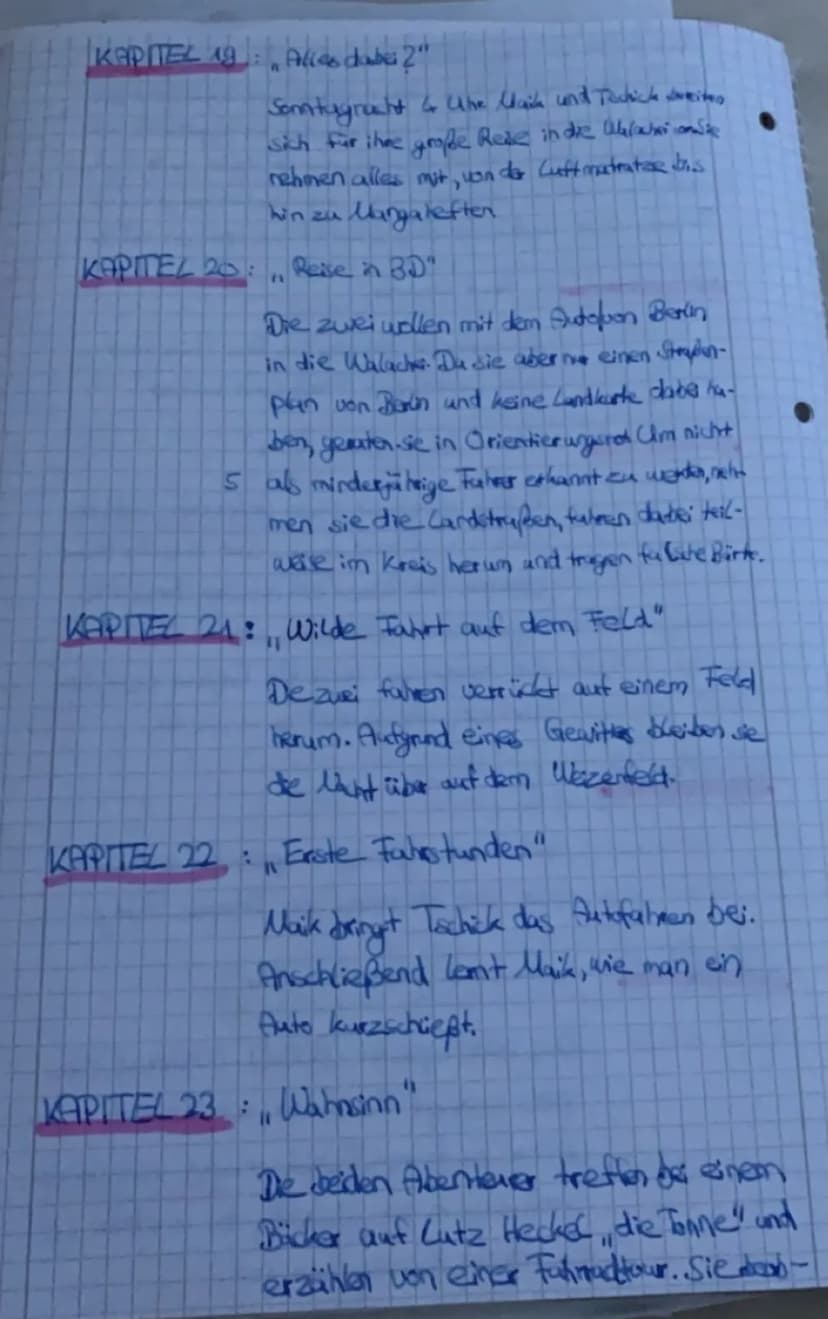 KAPITEL 19 : „Alles dabei?"
Sonntagnacht 4 Uhr Maik und Tschick
sich für ihre große Reise in die Walachei
nehmen alles mit, von der Luftmatratze bis
hin zu Mangaheften
KAPITEL 20 : „Reise in 3D"
Die zwei wollen mit dem Auto von Berlin
in die Walachei. Da sie aber nur einen Straßen-
plan von Berlin und keine Landkarte dabei ha-
ben, geraten sie in Orientierungsnot Um nicht
5 als minderjährige Fahrer erkannt zu werden, neh-
men sie die Landstraßen, fahren dabei teil-
weise im Kreis herum und tragen falsche Bärte.
KAPITEL 21 : „Wilde Fahrt auf dem Feld"
Die zwei fahren verrückt auf einem Feld
herum. Aufgrund eines Gewitters bleiben sie
die Nacht über auf dem Weizenfeld.
KAPITEL 22 : „Erste Fahrstunden"
Maik bringt Tschick das Autofahren bei.
Anschließend lernt Maik, wie man ein
Auto kurzschießt.
KAPITEL 23 : „Wahnsinn"
Die beiden Abenteurer treffen bei einem
Bäcker auf Lutz Heckel „die Tonne" und
erzählen von einer Fahrradtour. Sie